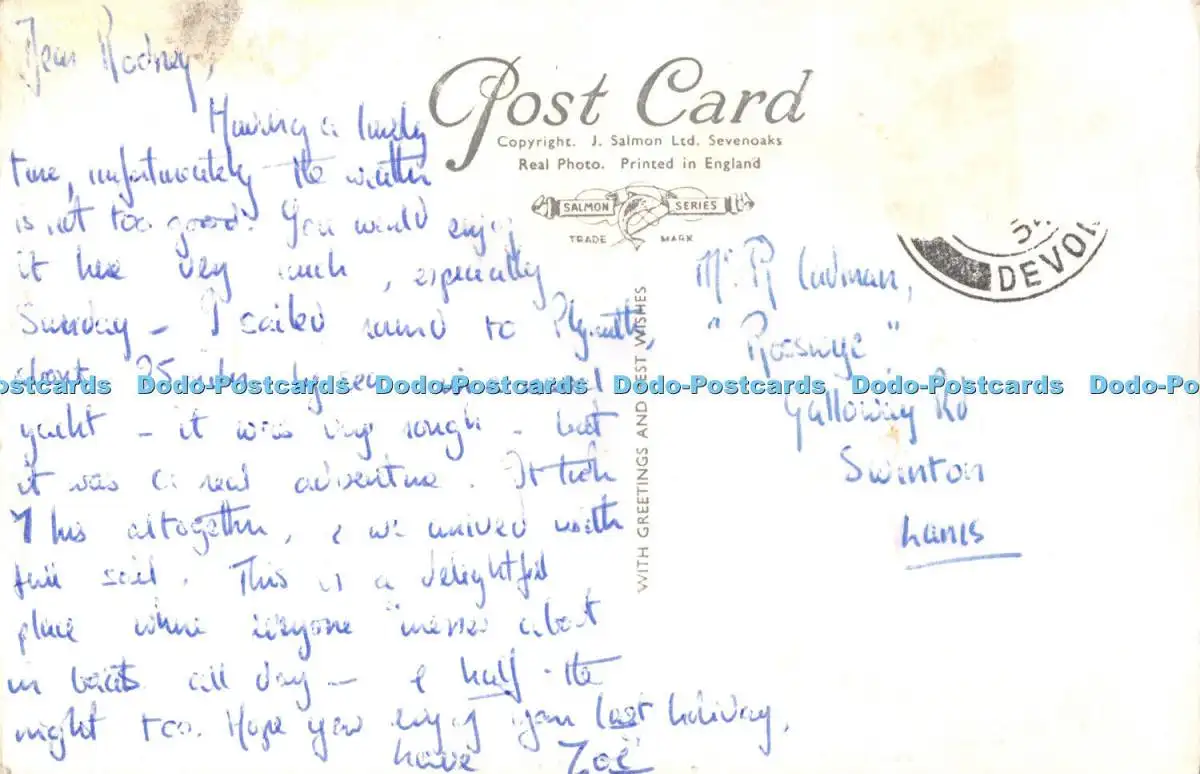 Dear Rodney,
Having a lovely
time, unfortunately the weather
is not too good. You would enjoy
it here very much, especially
Sunday – I sailed round to Plymouth,
about 25 miles by sea in a small
yacht – it was very rough – but
it was a real adventure. It took
7 hrs altogether, & we arrived with
full sail. This is a delightful
place where everyone "messes about
in boats all day – & half the
night too. Hope you enjoy your last holiday,
Love Zoë
Post Card
Copyright. J. Salmon Ltd. Sevenoaks
Real Photo. Printed in England
SALMON SERIES
TRADE MARK
WITH GREETINGS AND BEST WISHES
DEVON
Mr. R
"
Galloway Rd
Swinton
Lancs
Dodo-Postcards Dodo-Postcards Dodo-Postcards Dodo-Postcards Dodo-Postcards